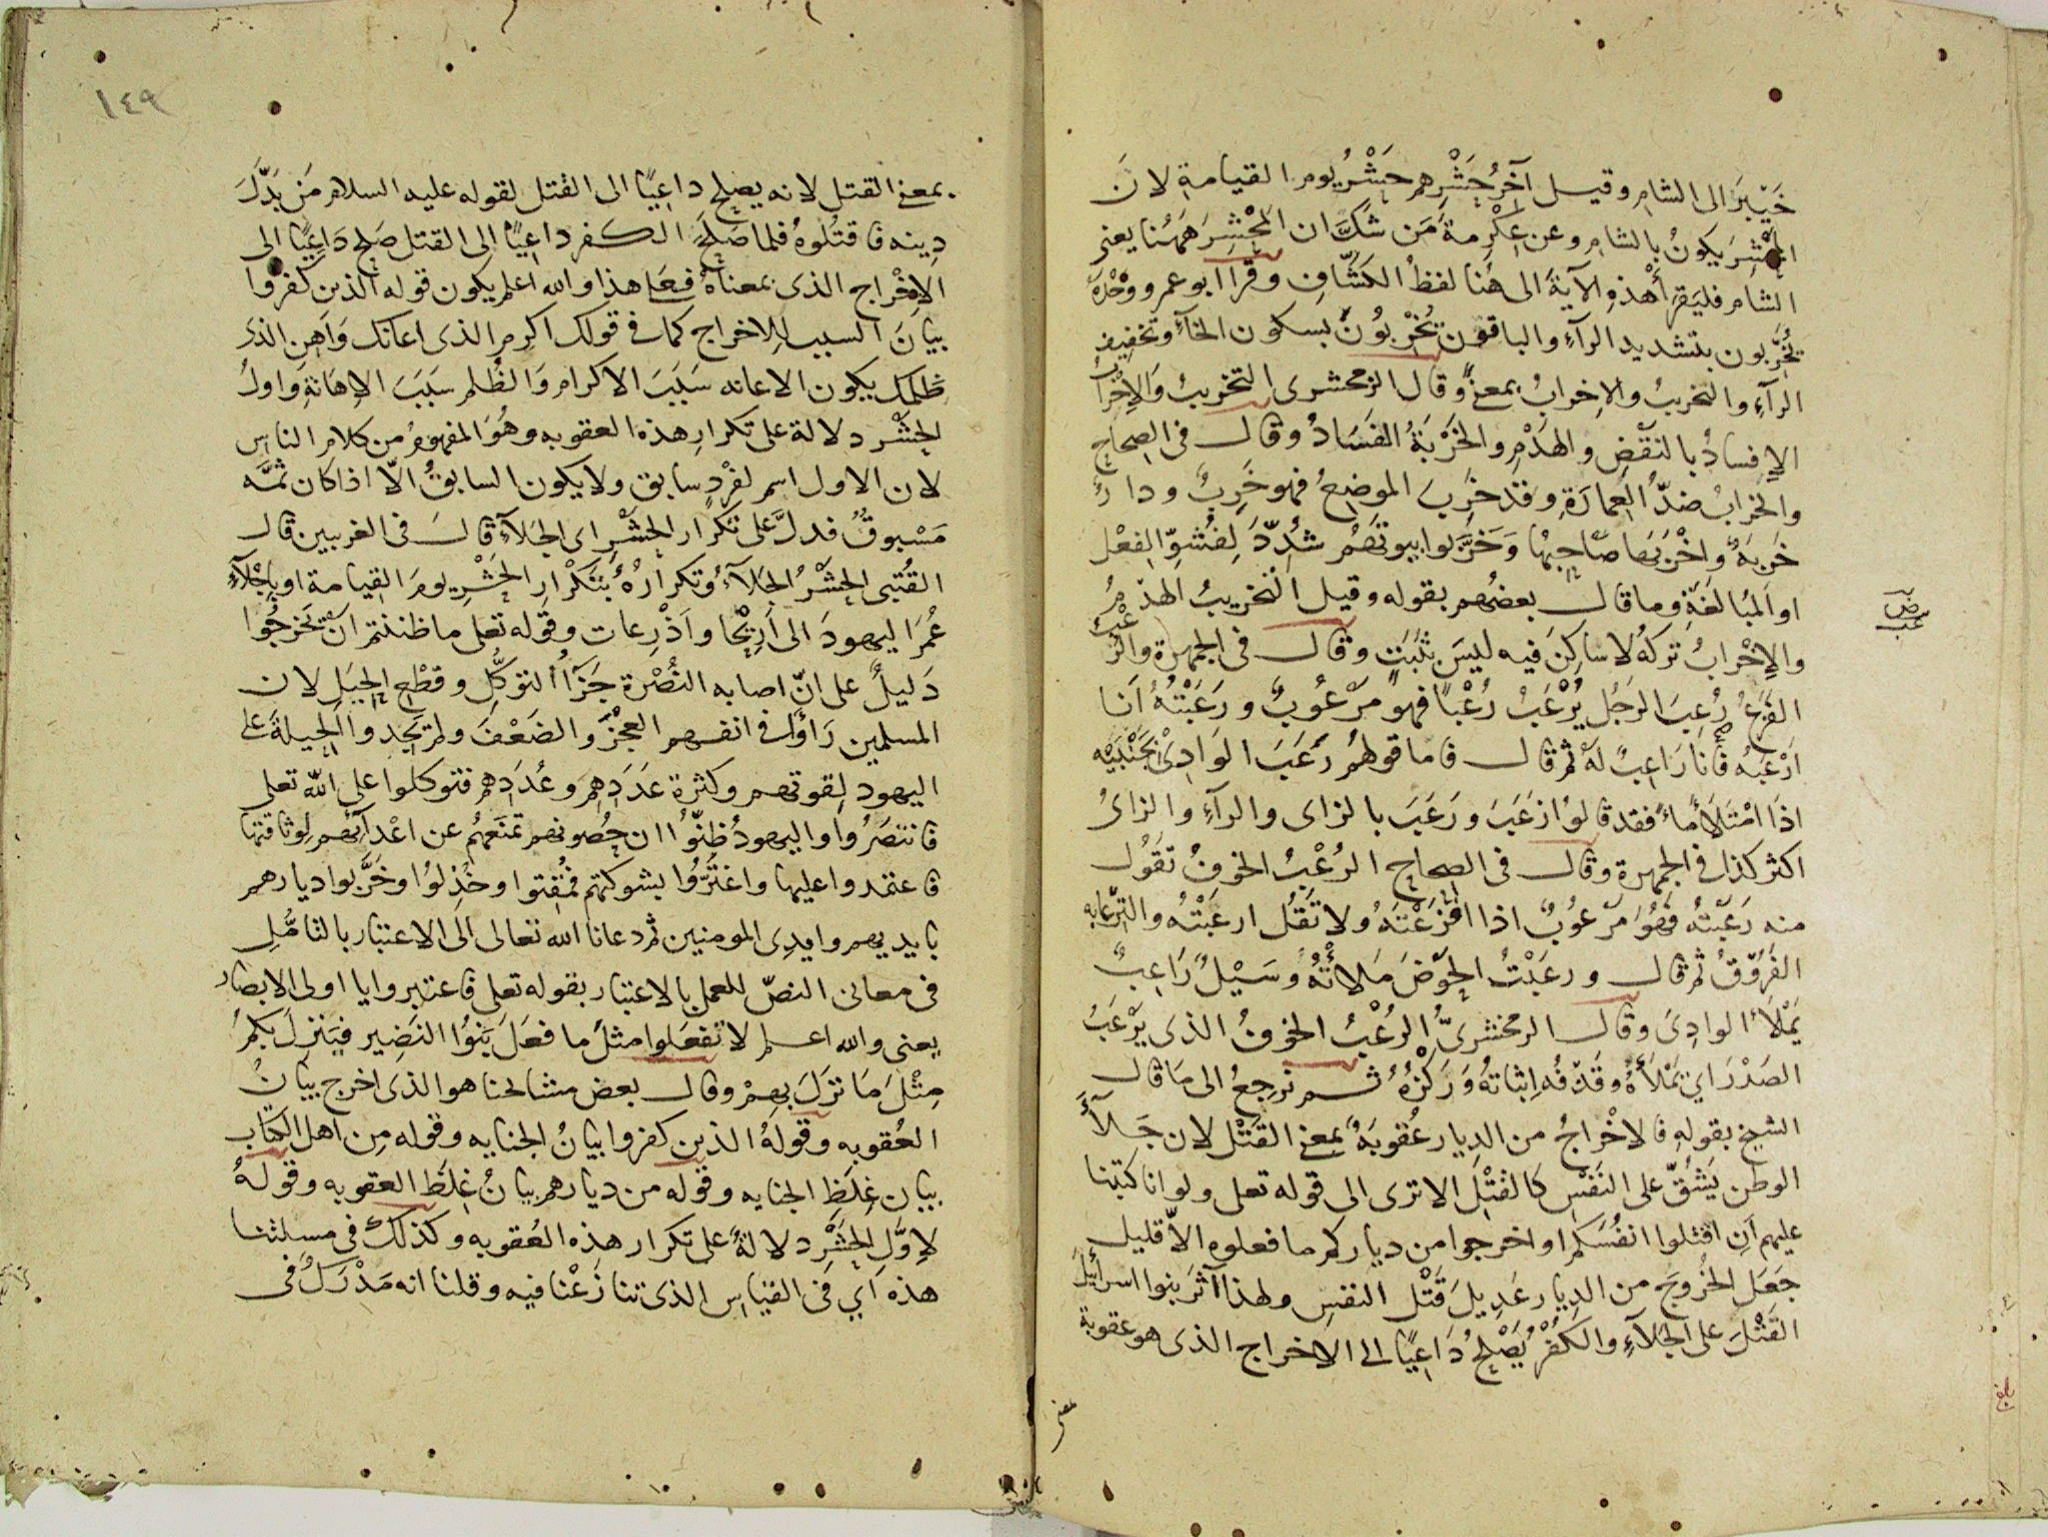 خَيْبَرَ الى الشام وقيل آخِرُ حَشْرِهم حَشْرُ يوم القيامة لان
المَحْشِرَ يكونُ بالشام وعن عِكْرِمة مَن شكَّ ان المَحْشِرَ هٰهُنا يعنى
الشام فليَقرأ هٰذه الآيةَ الى هُنا لفظُ الكَشّافِ وقرا ابو عمرو وَحْدَهُ
يُخَرِّبون بتشديد الرآءِ والباقون يُخْرِبُونَ بسكون الخآءِ وتخفيفِ
الرآءِ والتخريبُ والاِخرابُ بمعنًى وقال الزمخشرى التخريبُ وَالاِخْرابُ
الاِفسادُ بالنقْضِ والهَدْمِ والخُرْبَةُ الفَسَادُ وقال فى الصِحاحِ
والخرابُ ضدُّ العِمارَةِ وقد خَرِبَ الموضعُ فهو خَرِبٌ ودارٌ
خَرِبَةٌ واخْرَبَها صَاحِبُها وَخَرَّبوا بيوتَهُمْ شُدِّدَ لِفُشُوِّ الفِعْل
او المُبالَغَةِ وما قال بعضُهم بقوله وقيل التخريبُ الهدْمُ
والاِخْرابُ تركُهُ لا ساكِنَ فيه ليسَ بثَبَتٍ وقال فى الجمهرة والرُّعْبُ
الفَزَعُ رُعِبَ الرجُل يُرْعَبُ رُعْبًا فهو مَرْعُوبٌ ورَعَبْتُهُ اَنا
اَرْعَبُهُ فأنا رَاعِبٌ لَهُ ثم قال فاما قولهُم رَعَبَ الوَادِىْ بجَنْبَيْه
اذَا امْتَلَأَ ماءً فقد قالوُا زَعَبَ ورَعَبَ بالزاى والرآءِ والزاىُ
اكثر كذا فى الجمهرة وقال فى الصحاحِ الرُعْبُ الخوفُ تَقُول
منه رَعَبْتُهُ فَهُوَ مَرْعُوبٌ اذا افْزَعْتَهُ ولا تَقُل ارعَبْتُهُ والترعابه
الفَرُوقُ ثم قال ورعَبْتُ الحَوْضَ مَلأتُهُ وَسَيْلٌ رَاعِبٌ
يَمْلأُ الوادِىَ وقال الزمخشرىُّ الرُعْبُ الخوفُ الذى يَرْعَبُ
الصَدْرَ اي يَمْلأُهُ وقَذْفُه اِثباتهُ وَرَكْزُهُ ثم نرجعُ الى مَا قال
الشيخ بقولِهِ فالاخْراجُ من الديار عُقوبَةٌ بمعنى القَتْل لان جَلآءَ
الوطن يَشُقُّ على النَفْسِ كالقَتْلِ الا ترى الى قوله تعلى ولو انا كتبنا
عليهم اَنِ اقتلوا انفُسَكم او اخرجوا من دياركم ما فعلوه الاّ قليل
جَعَلَ الخُروجَ من الدِيار عَدِيلَ قَتْل النفسِ ولهذا آثَرَ بنوا اسرآئيلَ
القَتْلَ على الجَلآءِ والكُفْرُ يَصْلحُ دَاعِيًا الى الاخراج الذى هو عقوبة
عب
بلغ
بمعنى القتل لانه يصلح داعِيًا الى القتل لقوله عليه السلام مَن بَدَّلَ
دِينه فاقتُلوهُ فلما صَلَحَ الكفر داعِيًا الى القتل صَلح دَاعِيًا الى
الاِخْراج الذى بمعناهُ فعلى هذا والله اعلم يكون قوله الذين كفروا
بيانَ السبب للاخراج كما فى قولك اكرِم الذى اعانك وَاَهِنِ الذى
ظلمك يكون الاعانه سَبَبَ الاكرام وَالظُلم سَبَبَ الاِهَانَةِ وَاولُ
الحشْر دلالة على تكرارِ هذه العقوبه وهُوَ المفهومُ من كلام الناسِ
لان الاول اسم لفرْدٍ سابق ولا يكون السابقُ الاّ اذا كان ثَمَّه
مَسْبوقٌ فدلَّ على تكرار الحَشْرِ اى الجَلآءِ قالَ فى الغربيين قال
القُتَبى الحشْرُ الجَلآءُ وتكرارُهُ بتَكْرارِ الحَشْرِ يومَ القِيامة او بِاجْلآءِ
عُمرَ اليهودَ الى اَرِيْحا واَذْرِعات وقوله تعلى ما ظننتم ان يَخرجُوا
دَليلٌ على انّ اصابه النُصْرة جَزآءُ التوكُّلِ وقطْعِ الحِيَلِ لان
المسلمين رَاؤا فى انفسهم العجزَ والضَعْفَ ولم يَجدوا الحِيلةَ على
اليهود لِقوتهم وكثرة عَدَدِهِم وعُدَدِهم فتوكلوا على الله تعلى
فانتصَرُوا واليهودُ ظنّوُا ان حُصونهم تمنَعُهم عن اعْدآئهم لِوثاقتها
فاعتمدوا عليها واغتَرُّوا بشوكتهم فمُقِتوا وخُذِلوُا وخَرَّبوا ديارهم
بايديهم وايدِى المومنين ثم دعانا الله تعالى الى الاعتبار بالتامُّلِ
فى معانى النصّ للعمل بالاعتبار بقوله تعلى فاعتبروا يا اولى الابصار
يعنى والله اعلم لا تفعَلوا مثل ما فعَلَ بَنوُا النَضِير فيَنزلَ بكم
مِثْلَ مَا نَزَلَ بهِمْ وقال بعض مشائخنا هو الذى اخرج بيانُ
العُقوبه وقولهُ الذين كفروا بيانُ الجنايه وقوله مِن اهل الكتاب
بيان غِلَظِ الجنايه وقوله من ديارهم بيانُ غِلَظِ العقوبه وقولهُ
لاِوَّلِ الحَشْرِ دلالةٌ على تكرار هذه العُقوبه وكذلك فى مسئلتنا
هذه اَي فى القياسِ الذى تنازَعْنا فيه وقلنا انه مَدْرَكٌ فى
١٤٩